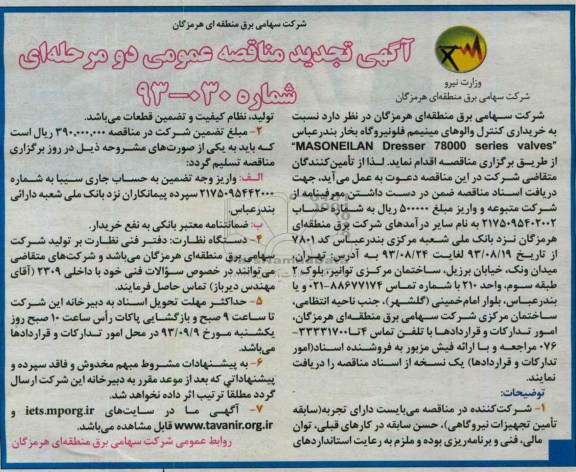 شرکت سهامی برق منطقه ای هرمزگان
آگهی تجدید مناقصه عمومی دو مرحله‌ای
شماره ۰۳۰-۹۳
وزارت نیرو
شرکت سهامی برق منطقه‌ای هرمزگان
شرکت سهامی برق منطقه‌ای هرمزگان در نظر دارد نسبت
به خریداری کنترل والوهای مینیمم فلونیروگاه بخار بندرعباس
"MASONEILAN Dresser 78000 series valves"
از طریق برگزاری مناقصه اقدام نماید. لذا از تأمین‌کنندگان
متقاضی شرکت در این مناقصه دعوت به عمل می‌آید، جهت
دریافت اسناد مناقصه ضمن در دست داشتن معرفینامه از
شرکت متبوعه و واریز مبلغ ۵۰۰۰۰۰ ریال به شماره حساب
۲۱۷۵۰۹۵۴۰۲۰۰۲ به نام سایر درآمدهای شرکت برق منطقه‌ای
هرمزگان نزد بانک ملی شعبه مرکزی بندرعباس کد ۷۸۰۱
از تاریخ ۹۳/۰۸/۱۹ لغایت ۹۳/۰۸/۲۴ به آدرس تهران،
میدان ونک، خیابان برزیل، ساختمان مرکزی توانیر، بلوک ۲
طبقه سوم، واحد ۲۱۰ با شماره تماس ۸۸۶۷۷۱۷۴-۰۲۱ و یا
بندرعباس، بلوار امام‌خمینی (گلشهر)، جنب ناحیه انتظامی،
ساختمان مرکزی شرکت سهامی برق منطقه‌ای هرمزگان،
امور تدارکات و قراردادها با تلفن تماس ۴تا۳۳۳۳۱۷۰۰-
۰۷۶ مراجعه و با ارائه فیش مزبور به فروشنده اسناد(امور
تدارکات و قراردادها) یک نسخه از اسناد مناقصه را دریافت
نمایند.
توضیحات:
۱- شرکت‌کننده در مناقصه می‌بایست دارای تجربه(سابقه
تأمین تجهیزات نیروگاهی)، حسن سابقه در کارهای قبلی، توان
مالی، فنی و برنامه‌ریزی بوده و ملزم به رعایت استانداردهای
تولید، نظام کیفیت و تضمین قطعات می‌باشد.
۲- مبلغ تضمین شرکت در مناقصه ۳۹۰,۰۰۰,۰۰۰ ریال است
که باید به یکی از صورت‌های مشروحه ذیل در روز برگزاری
مناقصه تسلیم گردد:
الف: واریز وجه تضمین به حساب جاری سیبا به شماره
۲۱۷۵۰۹۵۴۴۲۰۰۰ سپرده پیمانکاران نزد بانک ملی شعبه دارائی
بندرعباس.
ب: ضمانتنامه معتبر بانکی به نفع خریدار.
۴- دستگاه نظارت: دفتر فنی نظارت بر تولید شرکت
سهامی برق منطقه‌ای هرمزگان می‌باشد و شرکت‌های متقاضی
می‌توانند در خصوص سؤالات فنی خود با داخلی ۲۳۰۹ (آقای
مهندس دیرباز) تماس حاصل فرمایند.
۵- حداکثر مهلت تحویل اسناد به دبیرخانه این شرکت
تا ساعت ۹ صبح و بازگشایی پاکات رأس ساعت ۱۰ صبح روز
یکشنبه مورخ ۹۳/۰۹/۹ در محل امور تدارکات و قراردادها
می‌باشد.
۶- به پیشنهادات مشروط مبهم مخدوش و فاقد سپرده و
پیشنهاداتی که بعد از موعد مقرر به دبیرخانه این شرکت ارسال
گردد مطلقا ترتیب اثر داده نخواهد شد.
۷- آگهی ما در سایت‌های iets.mporg.ir و
www.tavanir.org.ir قابل مشاهده می‌باشد.
روابط عمومی شرکت سهامی برق منطقه‌ای هرمزگان